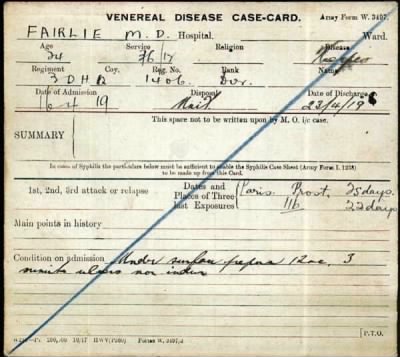 VENEREAL DISEASE CASE-CARD. Army Form W. 3497.
FAIRLIE M. D. Hospital. Ward.
Age Service Religion Disease
24 3 6/12
Regiment Coy. Reg. No. Rank
3 D H Q 1406 Dvr.
Date of Admission Disposal Date of Discharge
16 4 19 23/4/19
This spare not to be written upon by M. O. i/c case.
SUMMARY
In cases of Syphilis the particulars below must be sufficient to enable the Syphilis Case Sheet (Army Form I. 1238)
to be made up from this Card.
1st, 2nd, 3rd attack or relapse Dates and Places of Three Last Exposures Paris. Prost, 25 days.
22 days
Main points in history
Condition on admission Under surface 3
minute ulcers
Forms W. 3497.
P.T.O.